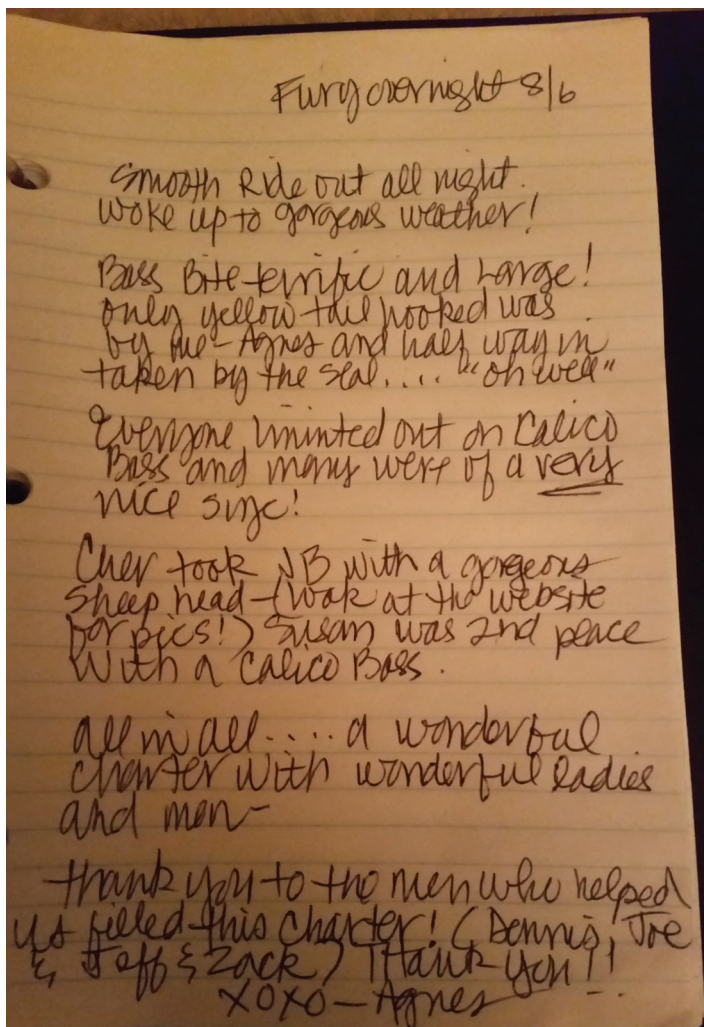 Fury overnight 8/6
Smooth Ride out all night.
Woke up to gorgeous weather!
Bass Bite-terrific and Large!
only yellow tail hooked was
by me-Agnes and half way in
taken by the seal.... "oh well"
Everyone liminted out on Calico
Bass and many were of a very
nice size!
Cher took JB with a gorgeous
Sheep head-(look at the website
for pics!) Susan was 2nd peace
With a Calico Bass.
all in all.... a wonderful
charter with wonderful ladies
and men-
thank you to the men who helped
us filled this Charter! (Dennis, Joe
& Jeff & Zack) Thank you!!
XOXO-Agnes